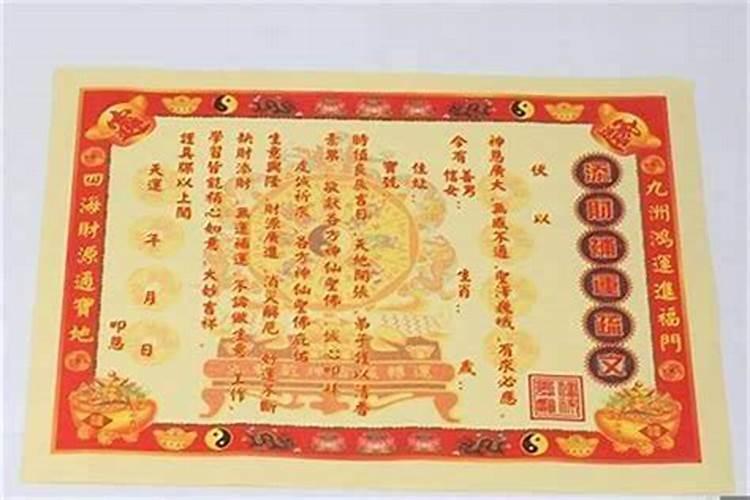 九洲鴻運進福門
添財補運疏文
伏以
神恩廣大 無感不通 聖澤巍峨 有求必應
今有 善男 信女： 生肖： 歲：
住址：
寶號
時值良辰吉日 天地開張 弟子謹以清香
素果 敬獻各方神仙聖佛 誠心叩拜
虔誠祈求 各方神仙聖佛庇佑
生意興隆 財源廣進 消災解厄 好運不斷
缺財添財 無運補運 不論做生意 工作
學習皆能稱心如意 大妙吉祥
謹具疏以上聞
天運 年 月 日 叩恩
四海財源通寶地